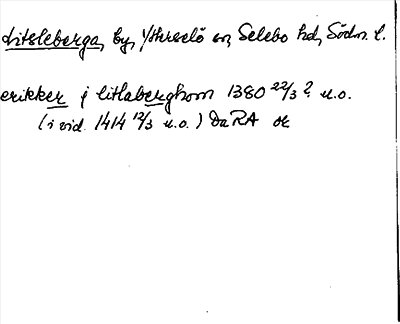 Litsleberga, by, Ytterselö sn, Selebo hd, Södm. l.
erikker j litlaberghom 1380 22/3? u.o.
(i vid. 1414 12/3 u.o.) Da RA or